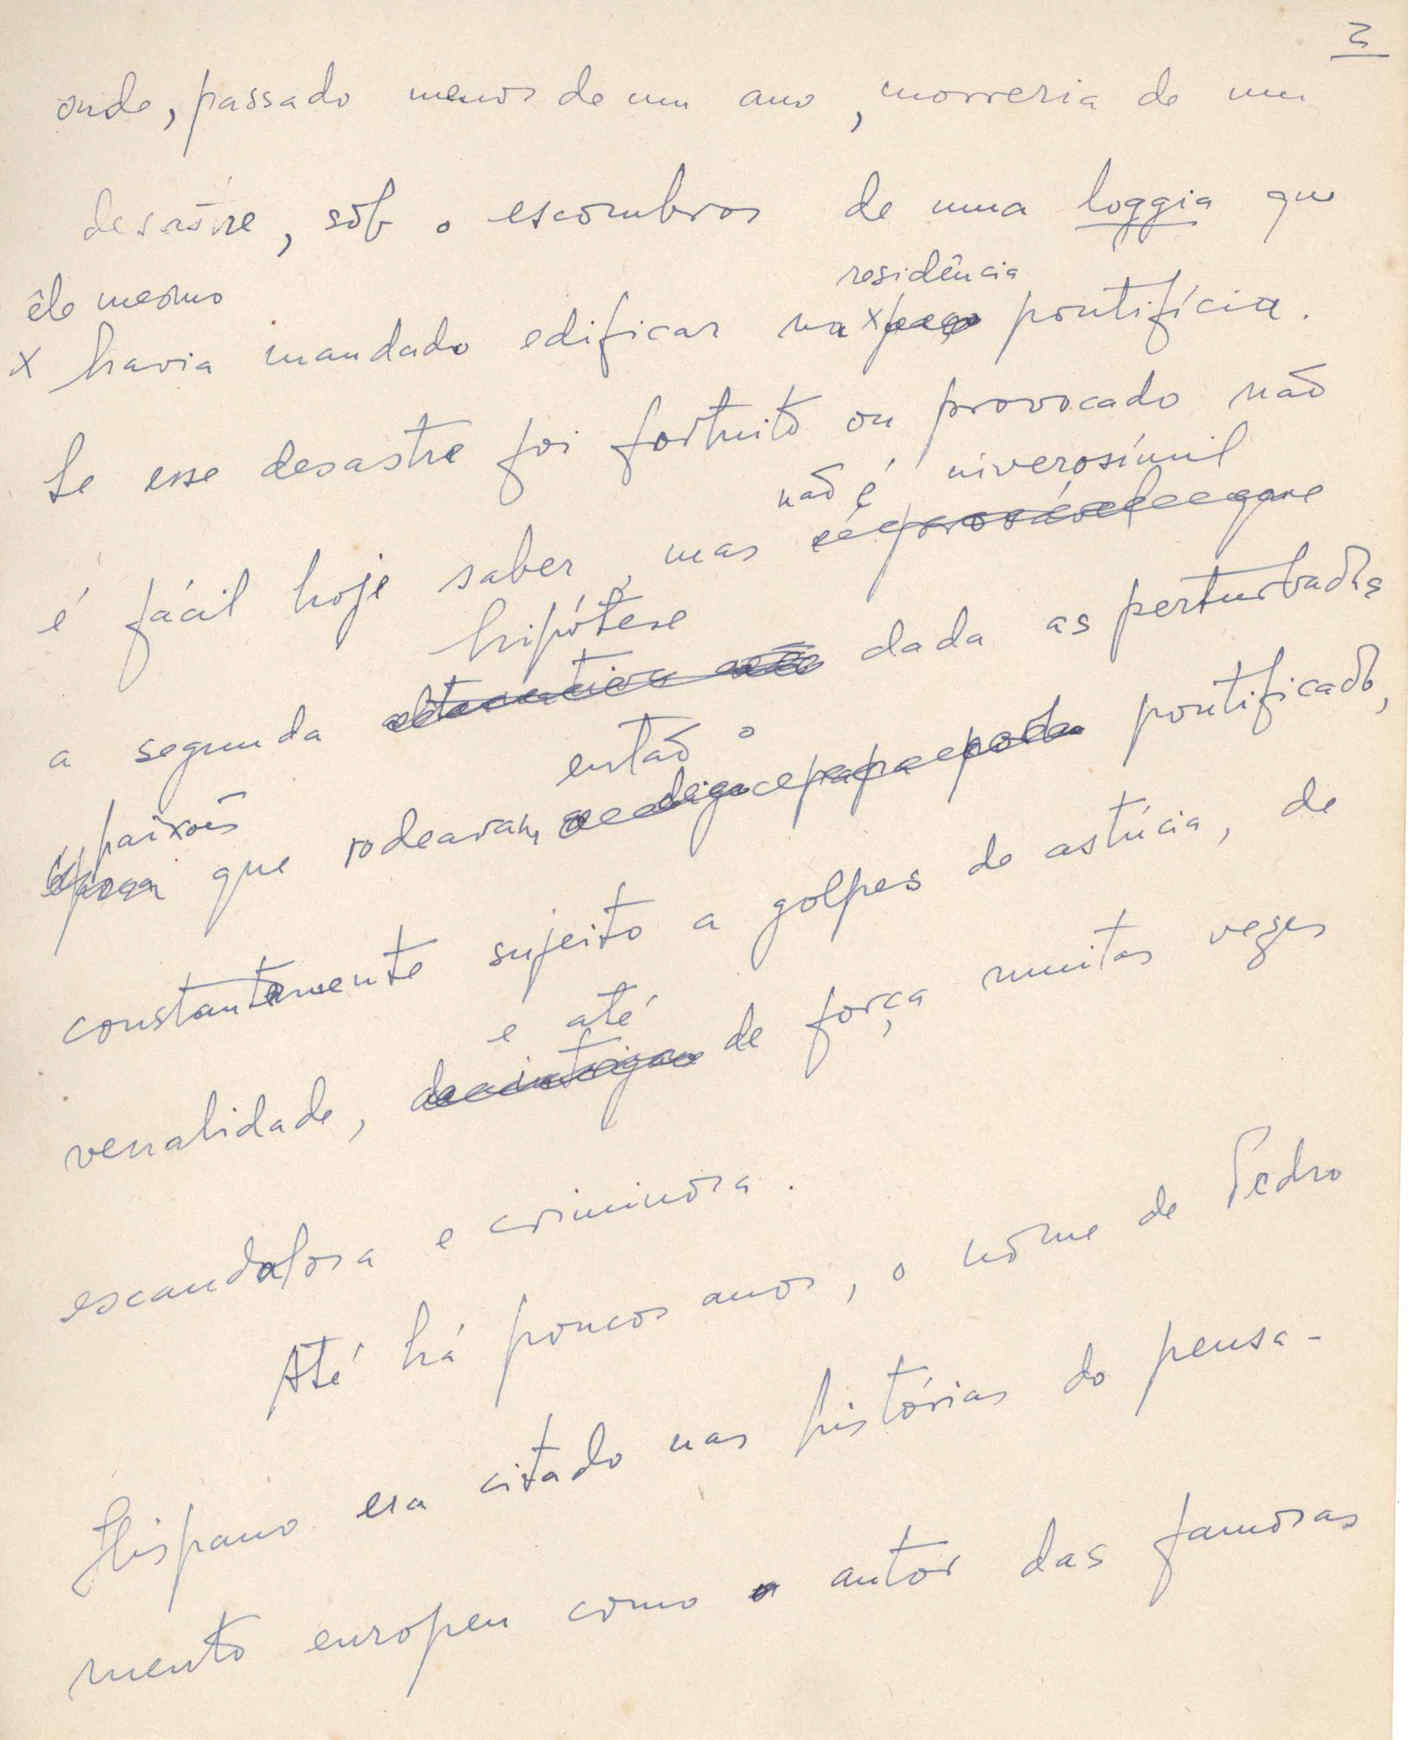 3
onde, passado menos de um ano, morreria de um
desastre, sôb o escombros de uma loggia que
êle mesmo residência
x havia mandado edificar na x paço pontifícia.
Se esse desastre foi fortuito ou provocado não
não é inverosímil
é fácil hoje saber, mas é provável que
hipótese
a segunda alternativa dada as perturbadas
então o
paixões
época que rodeavam pontificado,
constantemente sujeito a golpes de astúcia, de
e até
venalidade, de intriga de força muitas vezes
escandalosa e criminosa.
Até há poucos anos, o nome de Pedro
Hispano era citado nas histórias do pensa-
mento europeu como o autor das famosas